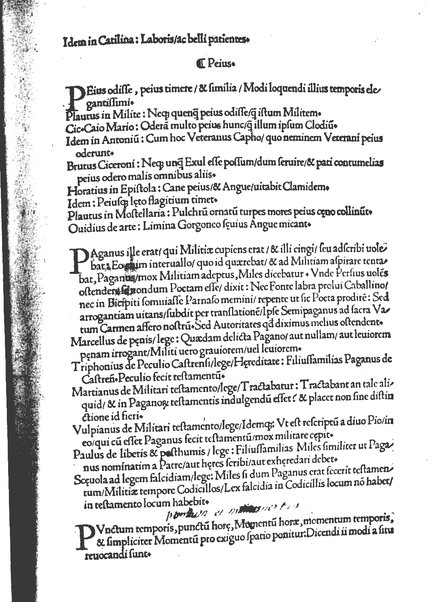 Idem in Catilina: Laboris/ac belli patientes.
¶ Peius.
PEius odisse, peius timere/& similia/Modi loquendi illius temporis ele
gantissimi.
Plautus in Milite: Neq; quenq̄ peius odisse/q̄ istum Militem.
Cic. Caio Mario: Oderā multo peius hunc/q̄ illum ipsum Clodiū.
Idem in Antoniū: Cum hoc Veteranus Capho/quo neminem Veterani peius
oderunt.
Brutus Ciceroni: Neq; unq̄ Exul esse possum/dum seruire/& pati contumelias
peius odero malis omnibus aliis.
Horatius in Epistola: Cane peius/& Angue/uitabit Clamidem.
Idem: Peiusq; lęto flagitium timet.
Plautus in Mostellaria: Pulchrū ornatū turpes mores peius cęno collinūt.
Ouidius de arte: Limina Gorgonco sęuius Angue micant.
PAganus ille erat/qui Militiæ cupiens erat/& illi cingi/seu adscribi uole
bat. Eo interuallo/quo id quærebat/& ad Militiam aspirare tenta
bat, Paganus/mox Militiam adeptus, Miles dicebatur. Vnde Persius uolēs
ostendere se nondum Poetam esse/dixit: Nec Fonte labra prelui Caballino/
nec in Bicipiti somniasse Parnaso memini/repente ut sic Poeta prodirē: Sed
arrogantiam uitans/subdit per translationē/Ipse Semipaganus ad sacra Va
tum Carmen affero nostrū. Sed Autoritates qd diximus melius ostendent.
Marcellus de pęnis/lege: Quædam delicta Pagano/aut nullam/aut leuiorem
pęnam irrogant/Militi uero grauiorem/uel leuiorem.
Triphonius de Peculio Castrensi/lege/Hereditate: Filiusfamilias Paganus de
Castreñ. Peculio fecit testamentū.
Martianus de Militari testamento/lege/Tractabatur: Tractabant an tale ali-
quid/& in Paganorꝝ testamentis indulgendū esset/& placet non sine distin
ctione id fieri.
Vulpianus de Militari testamento/lege/Idemq; Vt est rescriptū a diuo Pio/in
eo/qui cū esset Paganus fecit testamentū/mox militare cępit.
Paulus de liberis & posthumis/lege: Filiusfamilias Miles similiter ut Paga-
nus nominatim a Patre/aut hęres scribi/aut exhęredari debet.
Scęuola ad legem falcidiam/lege: Miles si dum Paganus erat fecerit testamen-
tum/Militiæ tempore Codicillos/Lex falcidia in Codicillis locum nō habet/
in testamento locum habebit.
PVnctum temporis, punctū horę, Momentū horæ, momentum temporis,
& simpliciter Momentū pro exiguo spatio ponitur: Dicendi ii modi a situ
reuocandi sunt.